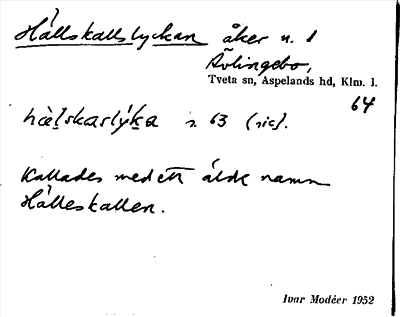 Hällskallslyckan åker n. 1
Åvlingebo,
Tveta sn, Aspelands hd, Klm. l.
64
hä̀l̥skaslýka n. 63 (sic).
Kallades med ett äldr namn
Hälleskallen.
Ivar Modéer 1952